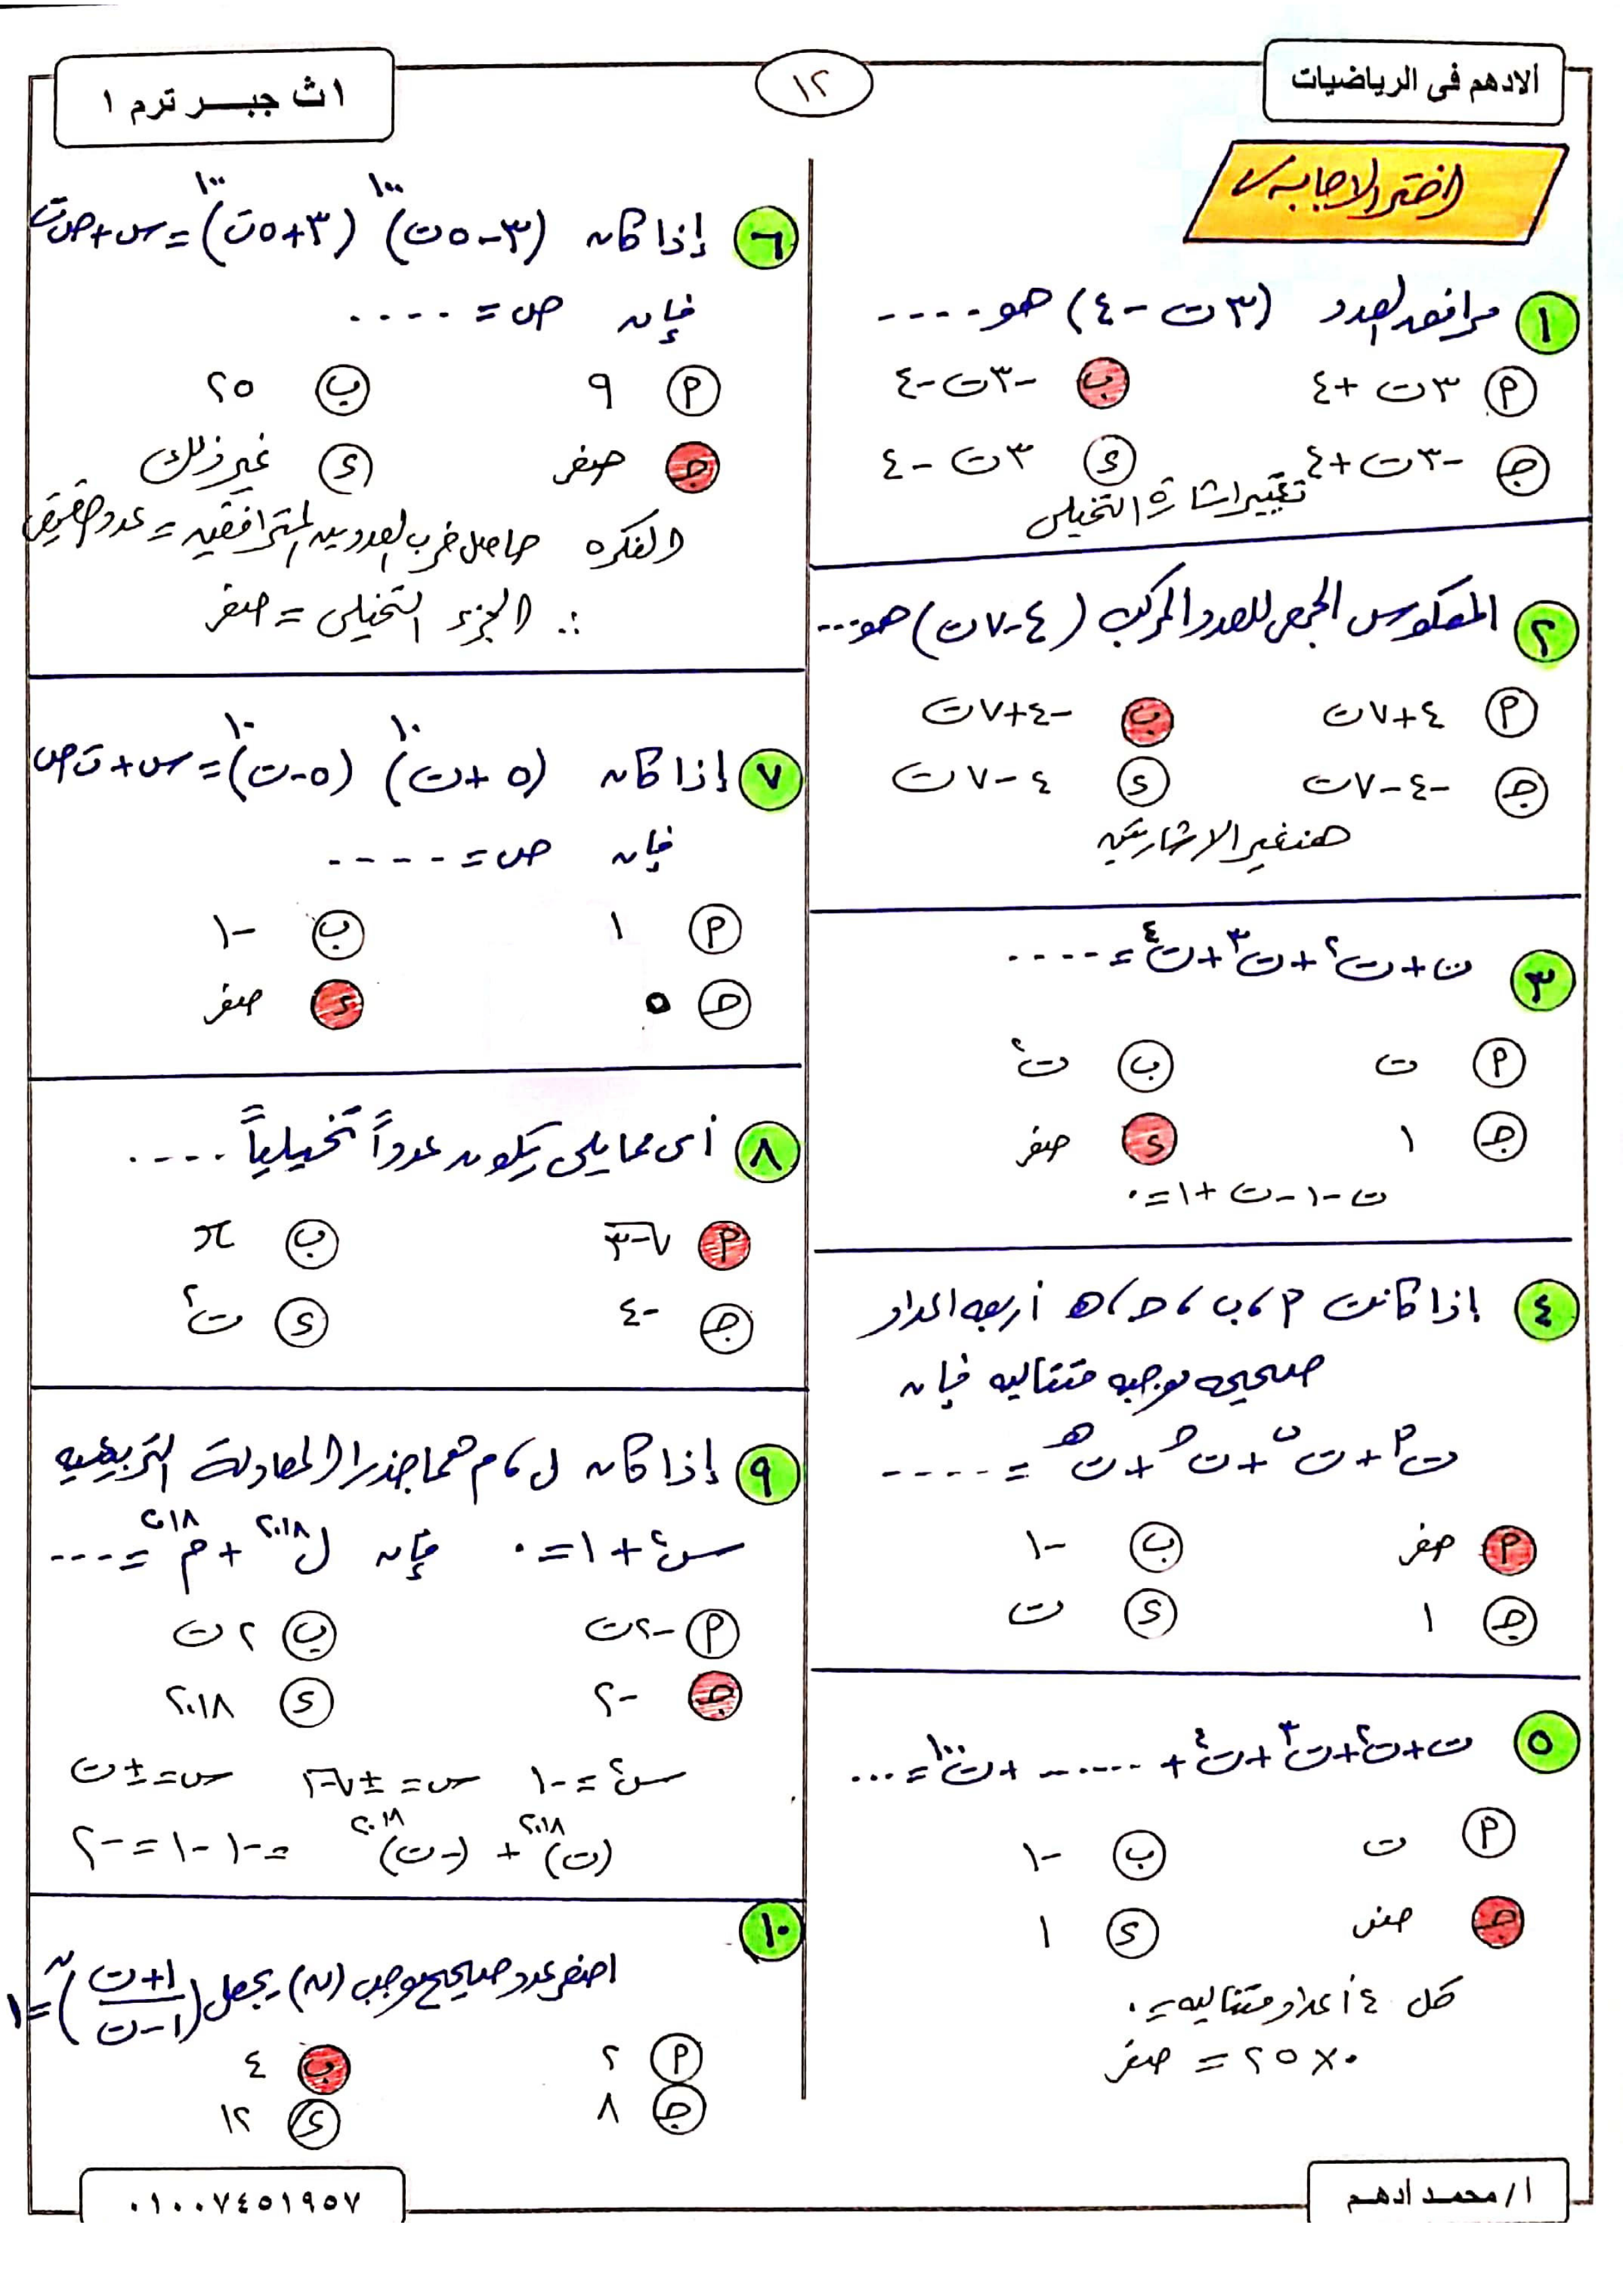 الادهم فى الرياضيات
١٢
١ث جبــر ترم ١
اختر الاجابه
١ مرافق العدد (٣ت - ٤) هو ----
أ ٣ت + ٤
ب -٣ت - ٤
ج -٣ت + ٤
د ٣ت - ٤
تغيير اشارة التخيلى
٢ المعكوس الجمعى للعدد المركب (٤ - ٧ت) هو ---
أ ٤ + ٧ت
ب -٤ + ٧ت
ج -٤ - ٧ت
د ٤ - ٧ت
هنغير الاشارتين
٣ ت + ت² + ت³ + ت⁴ = ----
أ ت
ب ت²
ج ١
د صفر
ت - ١ - ت + ١ = ٠
٤ إذا كانت أ، ب، حـ، هـ أربعه اعداد
صحيحه موجبه متتاليه فإن
ت^أ + ت^ب + ت^حـ + ت^هـ = ----
أ صفر
ب -١
ج ١
د ت
٥ ت + ت² + ت³ + ت⁴ + ...... + ت¹⁰⁰ = ...
أ ت
ب -١
ج صفر
د ١
كل ٤ أعداد متتاليه = ٠
٠ × ٢٥ = صفر
٦ إذا كان (٣ - ٥ت)¹⁰⁰ (٣ + ٥ت)¹⁰⁰ = س + ص ت
فإن ص = ----
أ ٩
ب ٢٥
ج صفر
د غير ذلك
الفكره حاصل ضرب العددين المترافقين = عدد حقيقى
∴ الجزء التخيلى = صفر
٧ إذا كان (٥ + ت)¹⁰ (٥ - ت)¹⁰ = س + ت ص
فإن ص = -----
أ ١
ب -١
ج ٥
د صفر
٨ أى مما يلى يكون عدداً تخيلياً ----
أ √-٣
ب π
ج -٤
د ت²
٩ إذا كان ل، م هما جذرا المعادلة التربيعيه
س² + ١ = ٠ فإن ل²⁰¹⁸ + م²⁰¹⁸ = ---
أ -٢ت
ب ٢ت
ج -٢
د ٢٠١٨
س² = -١ س = ±√-١ س = ±ت
(ت)²⁰¹⁸ + (-ت)²⁰¹⁸ = -١ - ١ = -٢
١٠ اصغر عدد صحيح موجب (ن) يجعل ((١ + ت)/(١ - ت))^ن = ١
أ ٢
ب ٤
ج ٨
د ١٢
ا/ محمد ادهم
٠١٠٠٧٤٥١٩٥٧